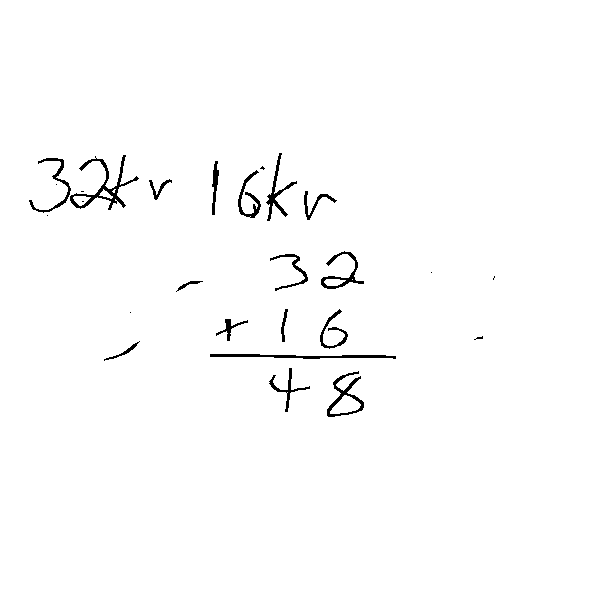 32kr 16kr
32
+ 16
48